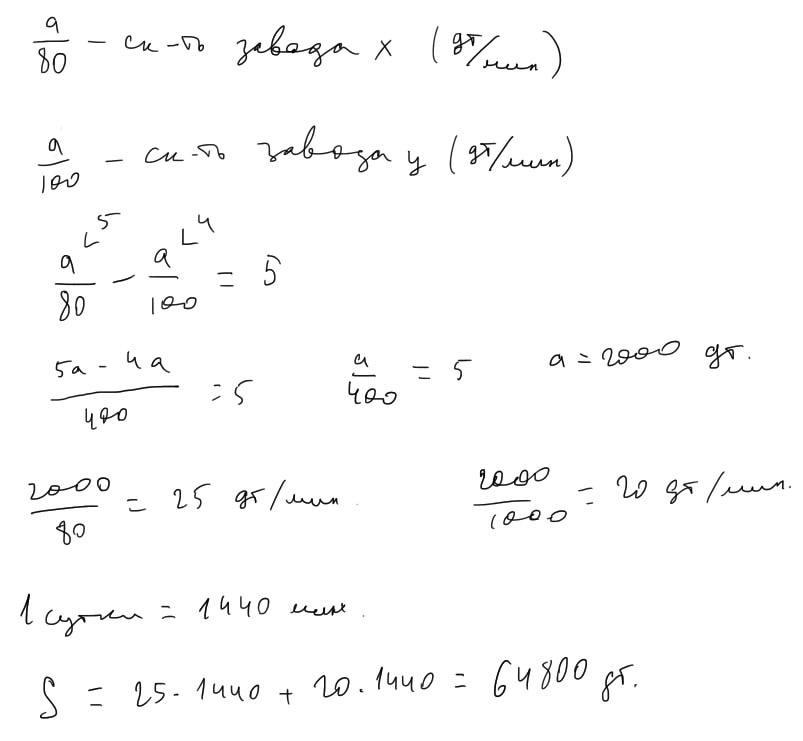 a/80 - ск-ть завода x (дт/мин)
a/100 - ск-ть завода y (дт/мин)
a/80 ∟5 - a/100 ∟4 = 5
(5a - 4a)/400 = 5   a/400 = 5   a = 2000 дт.
2000/80 = 25 дт/мин   2000/1000 = 20 дт/мин.
1 сутки = 1440 мин.
S = 25 · 1440 + 20 · 1440 = 64800 дт.